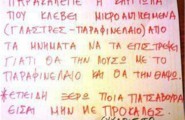 ΠΑΡΑΚΑΛΕΙΤΕ Η ΚΑΗΓΩΝΑ
ΠΟΥ ΚΛΕΒΕΙ ΜΙΚΡΟΑΝΤΙΚΕΙΜΕΝΑ
(ΓΛΑΣΤΡΕΣ-ΠΑΡΑΦΙΝΕΛΑΙΟ) ΑΠΟ
ΤΑ ΜΝΗΜΑΤΑ ΝΑ ΤΑ ΕΠΙΣΤΡΕΨΕΙ
ΓΙΑΤΙ ΘΑ ΤΗΝ ΛΟΥΣΩ ΜΕ ΤΟ
ΠΑΡΑΦΙΝΕΛΑΙΟ ΚΑΙ ΘΑ ΤΗΝ ΘΑΨΩ.
*ΕΠΕΙΔΗ ΞΕΡΩ ΠΟΙΑ ΠΑΤΣΑΒΟΥΡΑ
ΕΙΣΑΙ ΜΗΝ ΜΕ ΠΡΟΚΑΛΕΣ